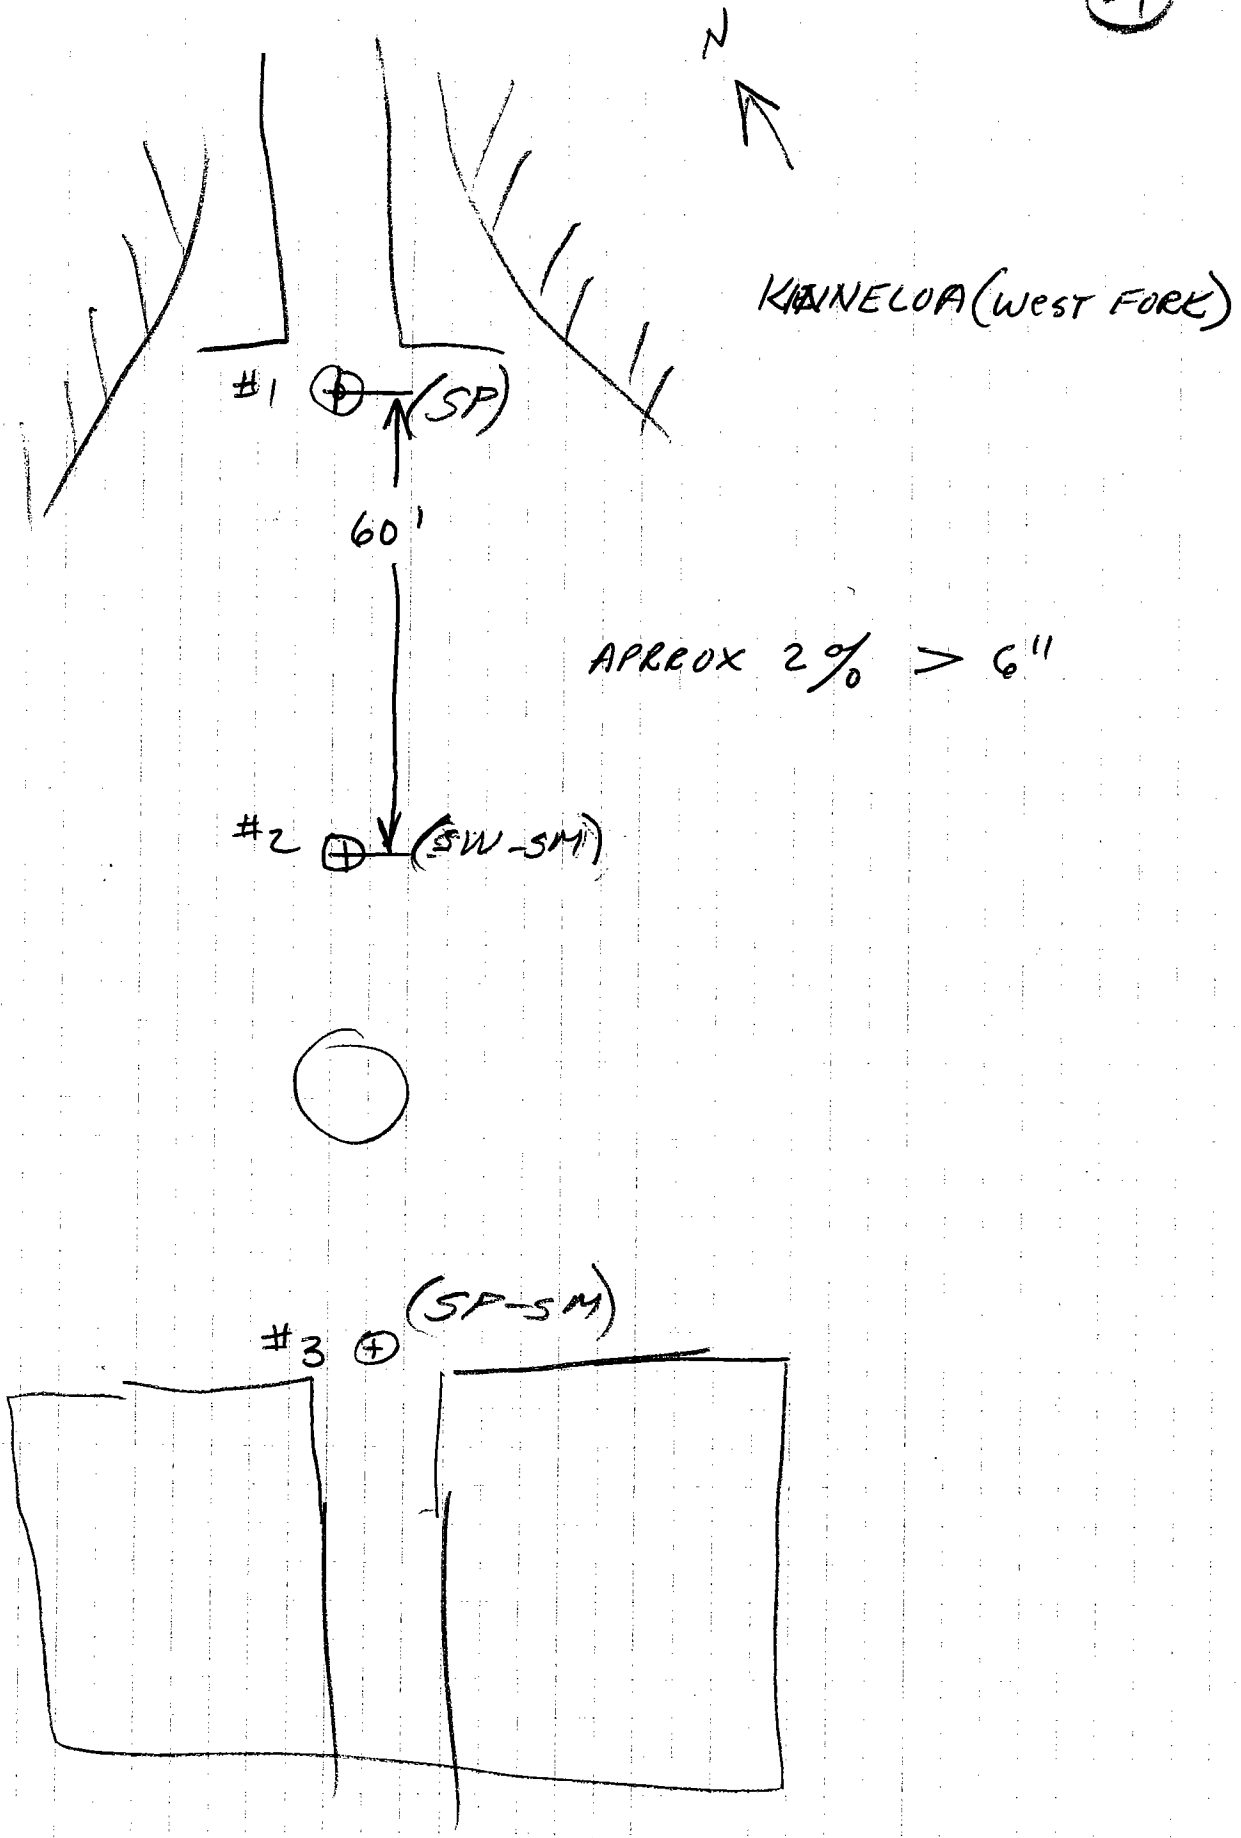 N
KINNELOA (WEST FORK)
#1 (SP)
60'
APRROX 2% > 6"
#2 (SW-SM)
(SP-SM)
#3